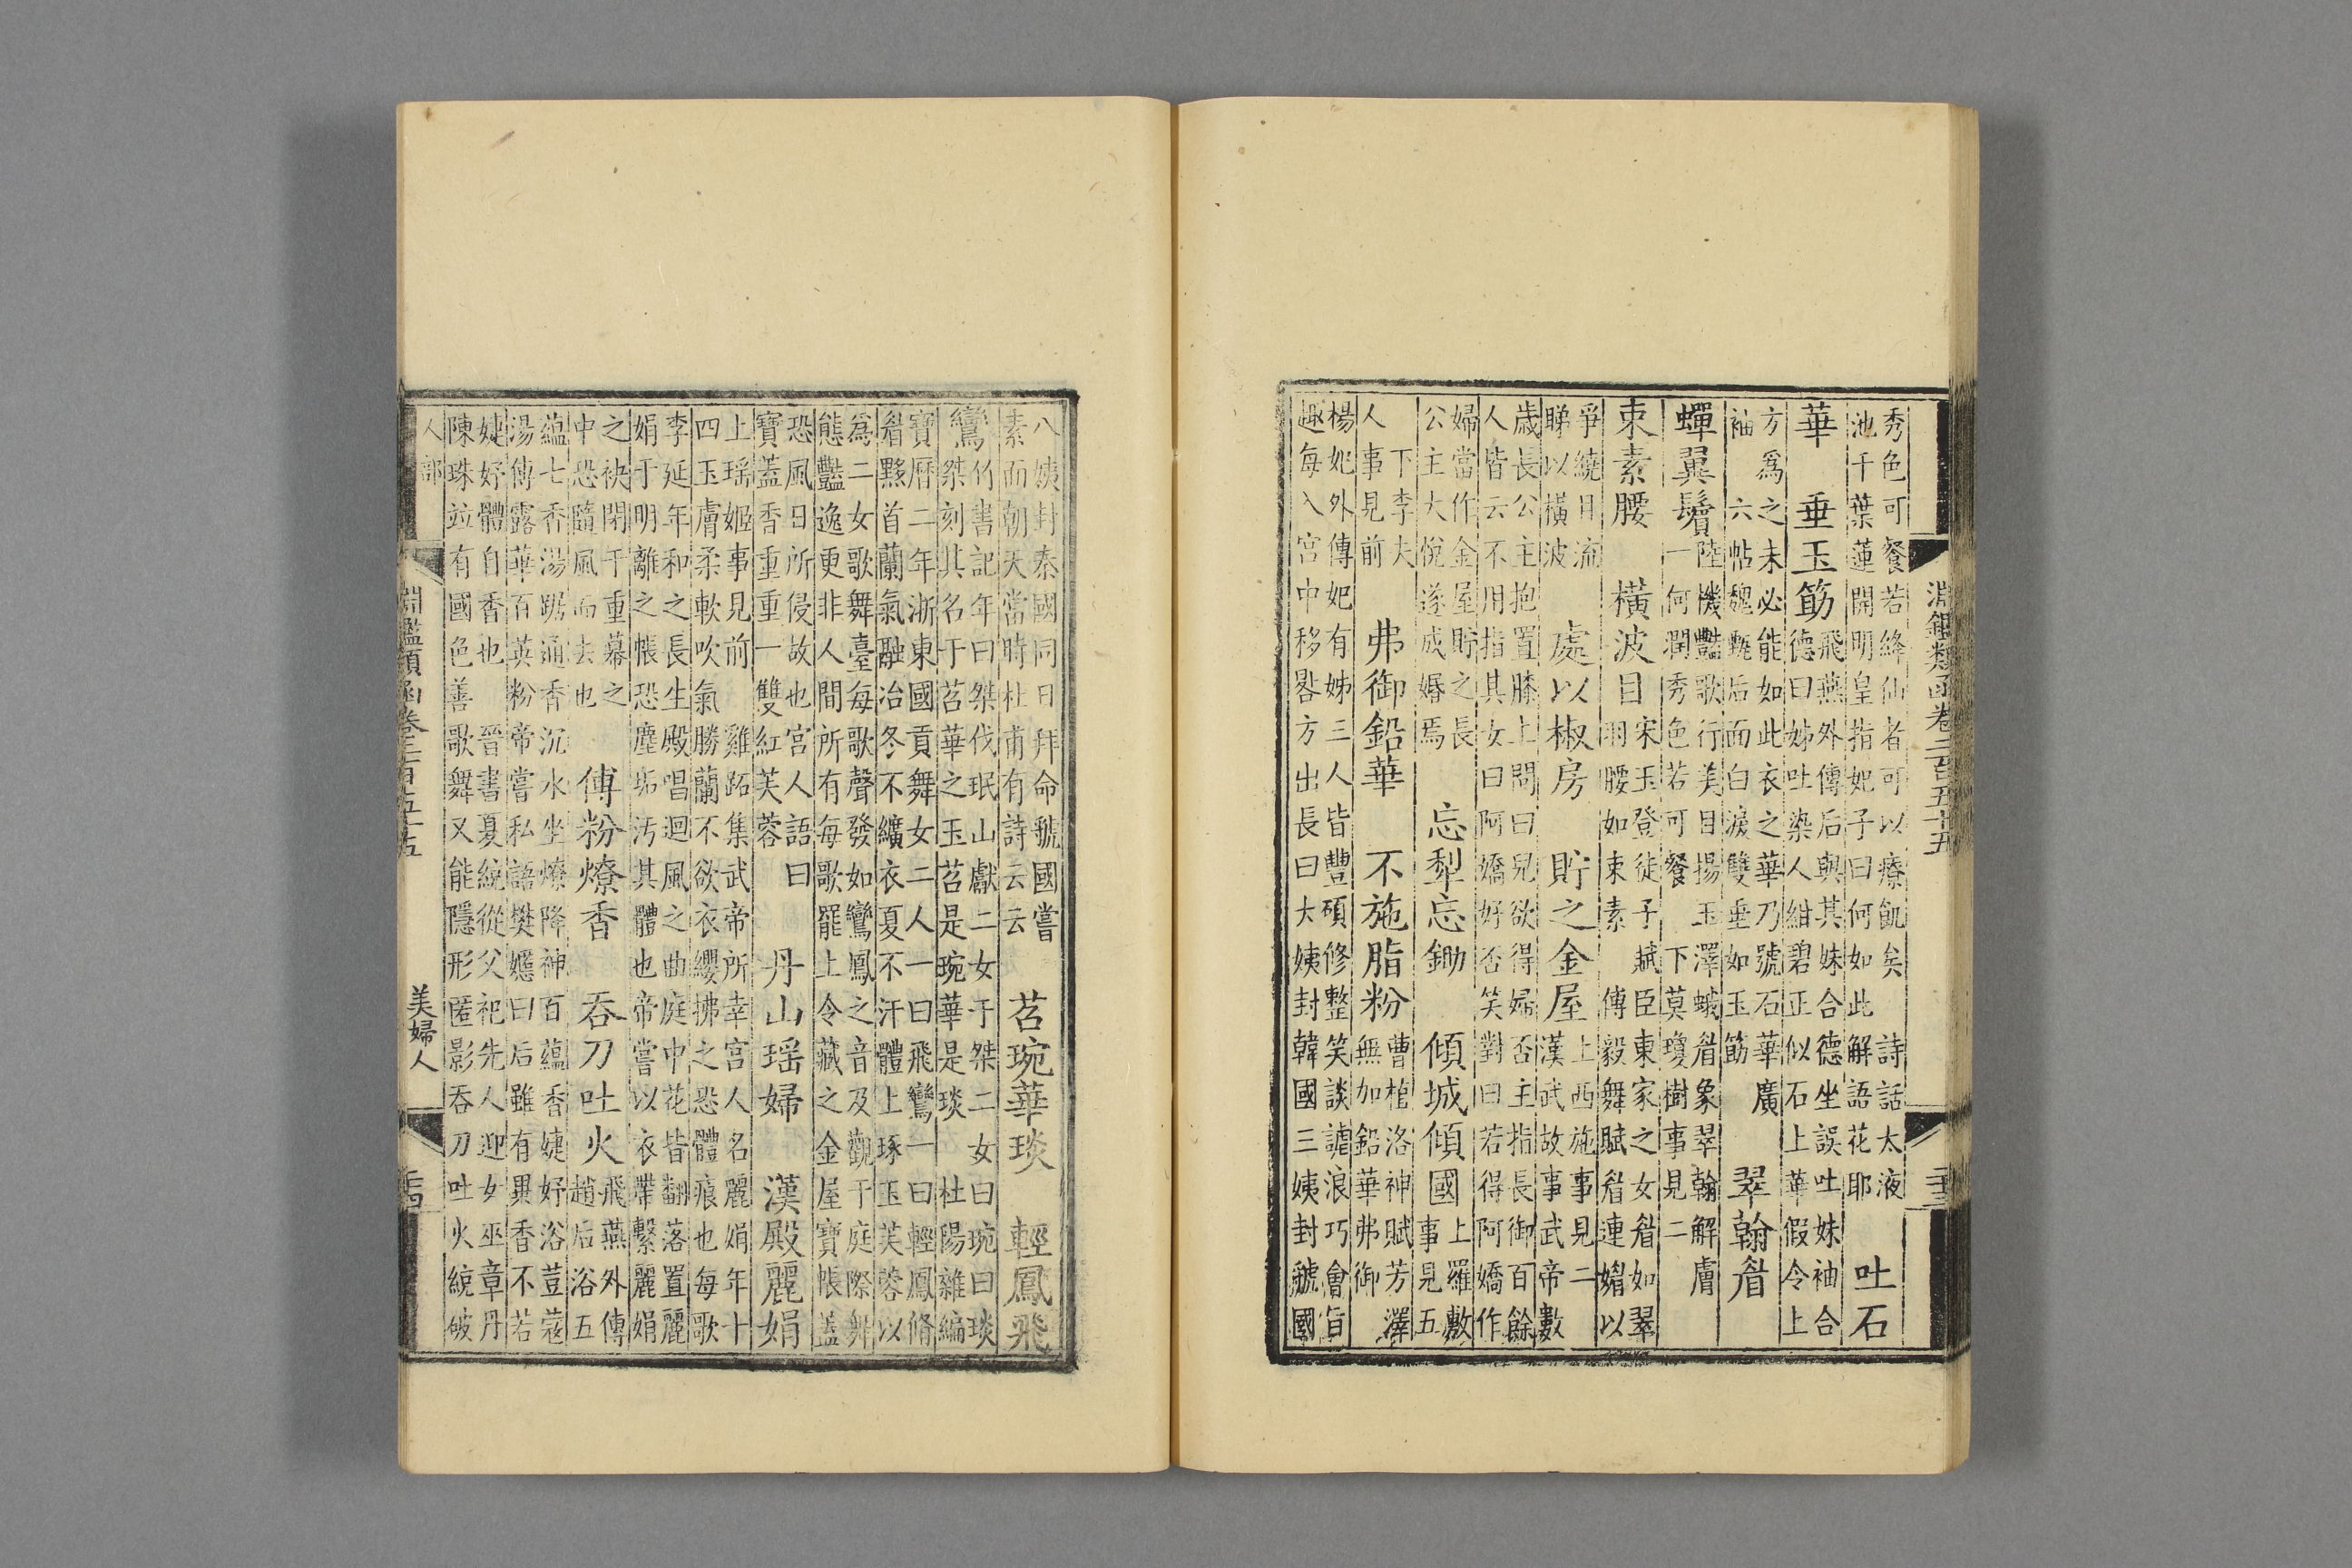 淵鑑類函卷二百五十五
秀色可餐若絳仙者可以療飢矣　詩話太液
池千葉蓮開明皇指妃子曰何如此解語花耶
吐石
華　垂玉筯
飛燕外傳后與其妹合德坐誤吐妹袖合
德曰姊吐染人紺碧正似石上華假令上
方爲之未必能如此衣之華乃號石華廣
袖　六帖魏甄后面白淚雙垂如玉筯
翠翰眉
蟬翼鬢
陸機豔歌行美目揚玉澤蛾眉象翠翰解膚
一何潤秀色若可餐　下莫瓊樹事見二
束素腰　橫波目
宋玉登徒子賦臣東家之女眉如翠
羽腰如束素　傅毅舞賦眉連娟以
爭繞目流
睇以橫波
處以椒房　貯之金屋
上西施事見二
漢武故事武帝數
歲長公主抱置膝上問曰兒欲得婦否主指長御百餘
人皆云不用指其女曰阿嬌好否笑對曰若得阿嬌作
婦當作金屋貯之長
公主大悅遂成婚焉
忘犁忘鋤　傾城傾國
上羅敷
事見五
下李夫
人事見前
弗御鉛華　不施脂粉
曹植洛神賦芳澤
無加鉛華弗御
楊妃外傳妃有姊三人皆豐碩修整笑談謔浪巧會旨
趣每入宮中移晷方出長曰大姨封韓國三姨封虢國
八姨封秦國同日拜命虢國嘗
素而朝天當時杜甫有詩云云
苕琬華琰　輕鳳飛
鸞
竹書記年曰桀伐珉山獻二女于桀二女曰琬曰琰
桀刻其名于苕華之玉苕是琬華是琰　杜陽雜編
寶曆二年浙東國貢舞女二人一曰飛鸞一曰輕鳳脩
眉黟首蘭氣融冶冬不纊衣夏不汗體上琢玉芙蓉以
爲二女歌舞臺每歌聲發如鸞鳳之音及觀于庭際舞
態豔逸更非人間所有每歌罷上令藏之金屋寶帳蓋
恐風日所侵故也宮人語曰
寶蓋香重重一雙紅芙蓉
丹山瑤婦　漢殿麗娟
上瑤姬事見前　雞跖集武帝所幸宮人名麗娟年十
四玉膚柔軟吹氣勝蘭不欲衣纓拂之恐體痕也每歌
李延年和之長生殿唱迴風之曲庭中花皆翻落置麗
娟于明離之帳恐塵垢汚其體也帝嘗以衣帶繫麗娟
之袂閉千重幕之
中恐隨風而去也
傅粉燎香　吞刀吐火
飛燕外傳
趙后浴五
蘊七香湯踞通香沉水坐燎降神百蘊香婕妤浴荳蔻
湯傅露華百英粉帝嘗私語樊嬺曰后雖有異香不若
婕妤體自香也　晉書夏統從父祀先人迎女巫章丹
陳珠竝有國色善歌舞又能隱形匿影吞刀吐火統破
人部
淵鑑類函卷二百五十五
美婦人